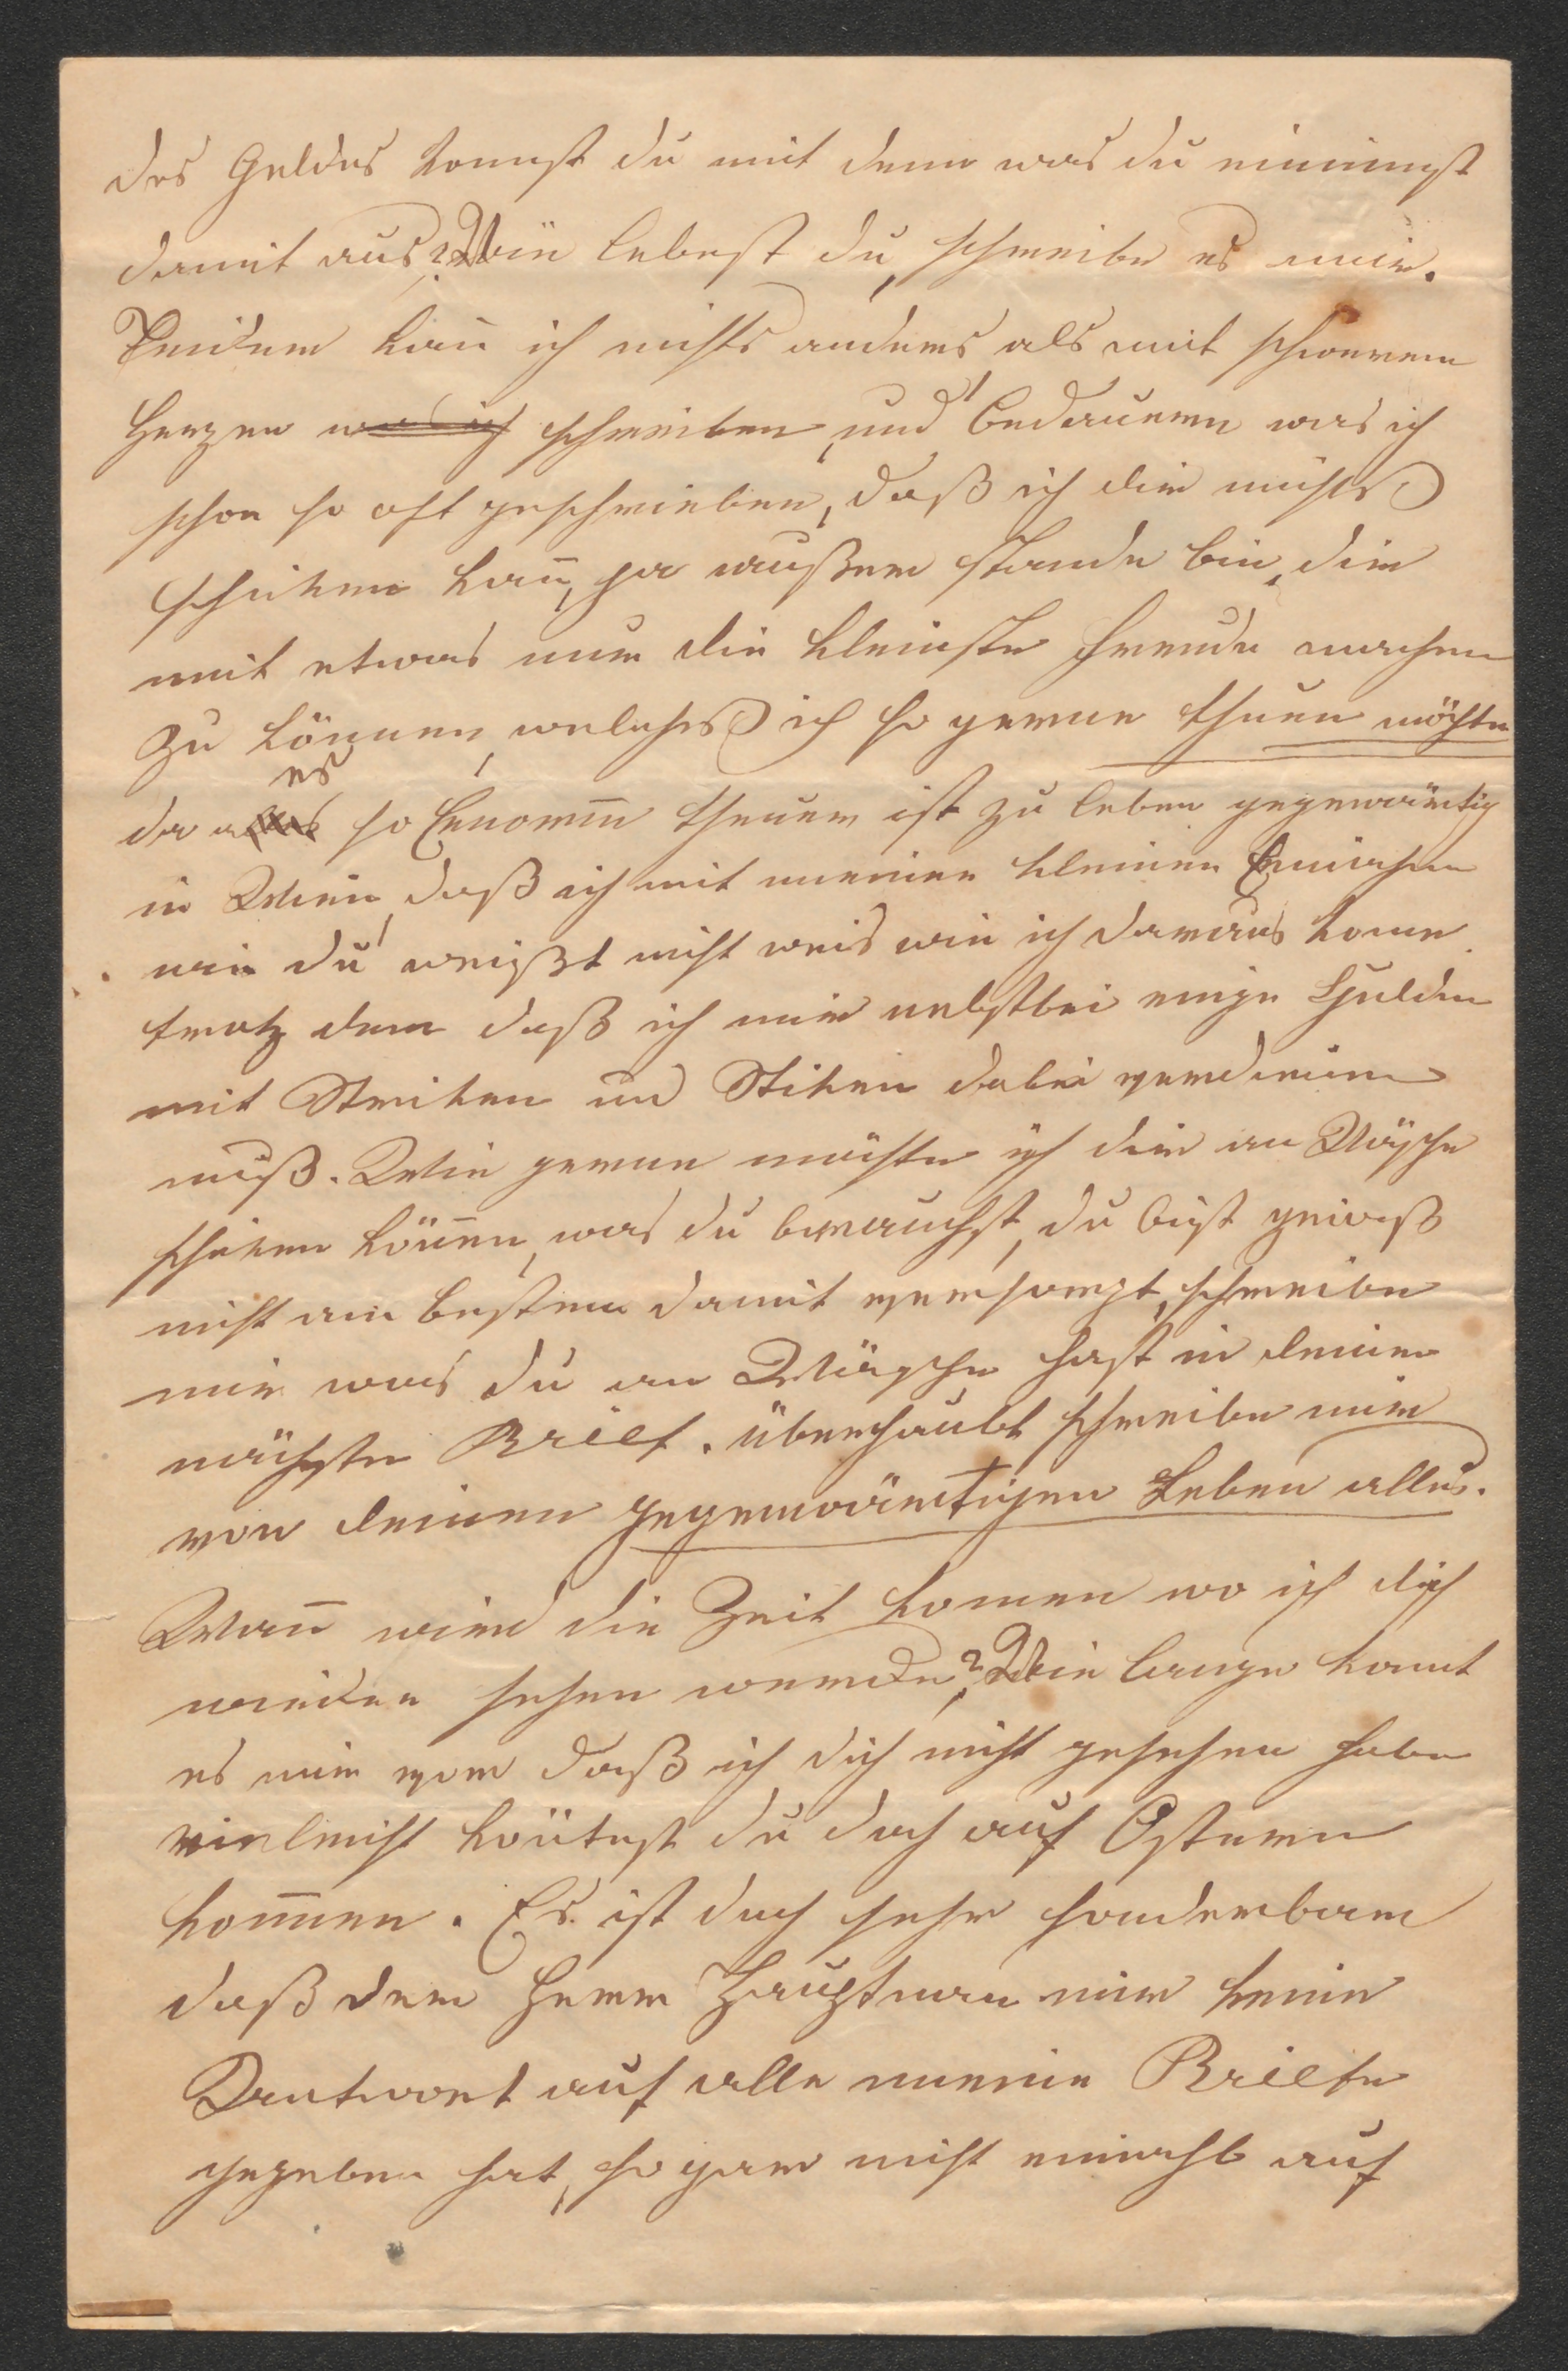 des Geldes komst du mit dem was du einimst
damit aus? Wie lebest du, schreibe es mir.
Leider kan̄ ich nichts anderes als mit schwerem
Herzen was ich schreiben, und bedauern was ich
schon so oft geschrieben, daß ich dir nichts
schiken kan̄, ja außer Stande bin, dir
mit etwas nur die kleinste Freude machen
zu können, welches ich so gerne thuen möchte
da es so Enorm̄ theuer ist zu leben gegenwärtig
in Wien, daß ich mit meiner kleinen
wie du weißt nicht weis wie ich daraus kome
trotz dem daß ich mir nebstbei einge Gulden
mit Striken und Stiken dabei verdienen
muß. Wie gerne möchte ich dir an Wäsche
schiken kön̄en, was du brauchst, du bist gewiß
nicht am besten damit versorgt, schreibe
mir was du an Wäsche hast in deinen
nächsten Brief. überhaubt schreibe mir
von deinen gegenwärtigen Leben alles.
Wan̄ wird die Zeit komen wo ich dich
wieder sehen werde? Wie lange komt
es mir vor daß ich dich nicht gesehen habe
vieleicht kön̄test du doch auf Ostern
kom̄men. Es ist doch sehr sonderbar
daß der Herr Hauptman mir keine
Antwort auf alle meine Briefe
gegeben hat, so gar nicht einmahl auf